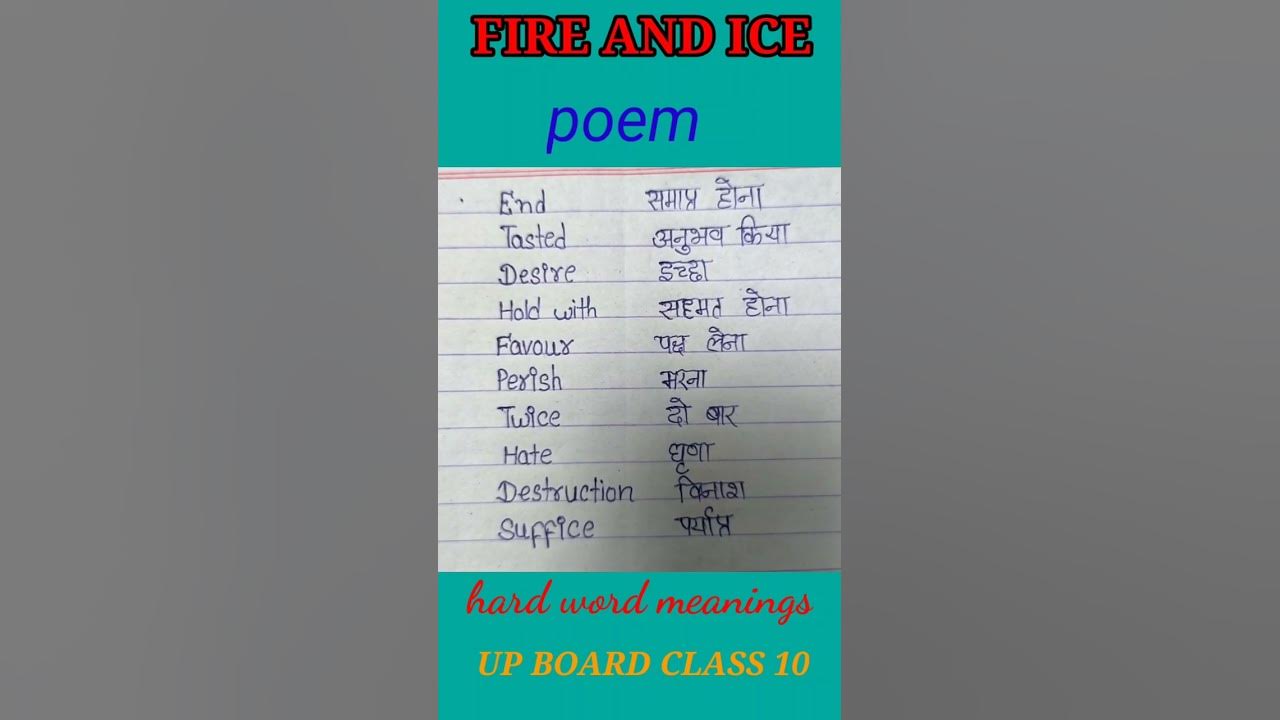 FIRE AND ICE
poem
End समाप्त होना
Tasted अनुभव किया
Desire इच्छा
Hold with सहमत होना
Favour पक्ष लेना
Perish मरना
Twice दो बार
Hate घृणा
Destruction विनाश
Suffice पर्याप्त
hard word meanings
UP BOARD CLASS 10